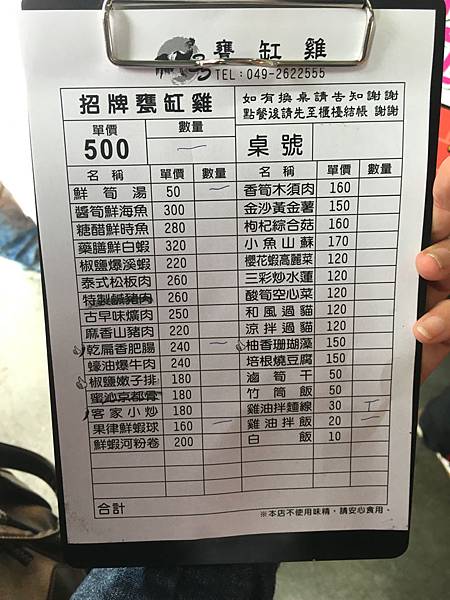 甕缸雞
TEL:049-2622555
招牌甕缸雞
如有換桌請告知謝謝
點餐後請先至櫃檯結帳 謝謝
單價 數量
500 一
桌號
名稱 單價 數量 名稱 單價 數量
鮮筍湯 50 一 香筍木須肉 160
醬筍鮮海魚 300 金沙黃金薯 150
糖醋鮮時魚 280 枸杞綜合菇 160
藥膳鮮白蝦 320 小魚山蘇 170
椒鹽爆溪蝦 220 櫻花蝦高麗菜 120
泰式松板肉 260 三彩炒水蓮 120
特製鹹豬肉 260 酸筍空心菜 120
古早味爌肉 250 和風過貓 120
麻香山豬肉 220 涼拌過貓 120
乾扁香肥腸 240 一 柚香珊瑚藻 150
蠔油爆牛肉 240 培根燒豆腐 150
椒鹽嫩子排 180 滷筍干 50
蜜沁京都骨 180 竹筒飯 50
客家小炒 180 雞油拌麵線 30 丅
果律鮮蝦球 160 一 雞油拌飯 20 二
鮮蝦河粉卷 200 白飯 10
合計
※本店不使用味精,請安心食用。